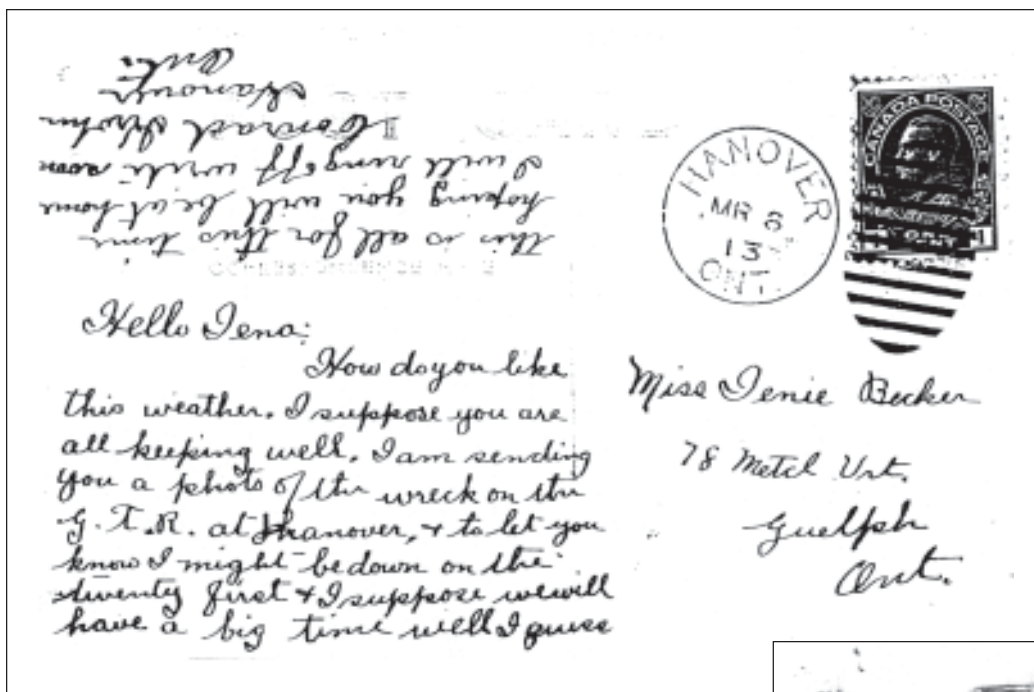 Hello Tena:
How do you like
this weather. I suppose you are
all keeping well. I am sending
you a photo of the wreck on the
G.T.R. at Hanover, + to let you
know I might be down on the
twenty first + I suppose we will
have a big time well I guess
this is all for this time
hoping you will be at home
I will ring off write soon
Conrad
Hanover
Ont.
HANOVER
MR 6
13
ONT.
CANADA POSTAGE
Miss Tenie Becker
78
Guelph
Ont.